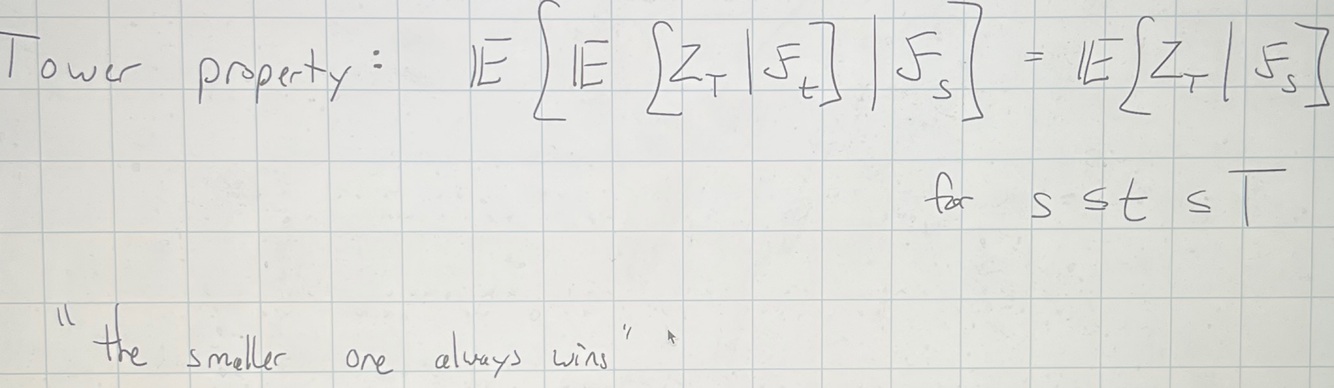 Tower property: 𝔼[𝔼[Z_T | ℱ_t] | ℱ_s] = 𝔼[Z_T | ℱ_s]
for s ≤ t ≤ T
"the smaller one always wins"